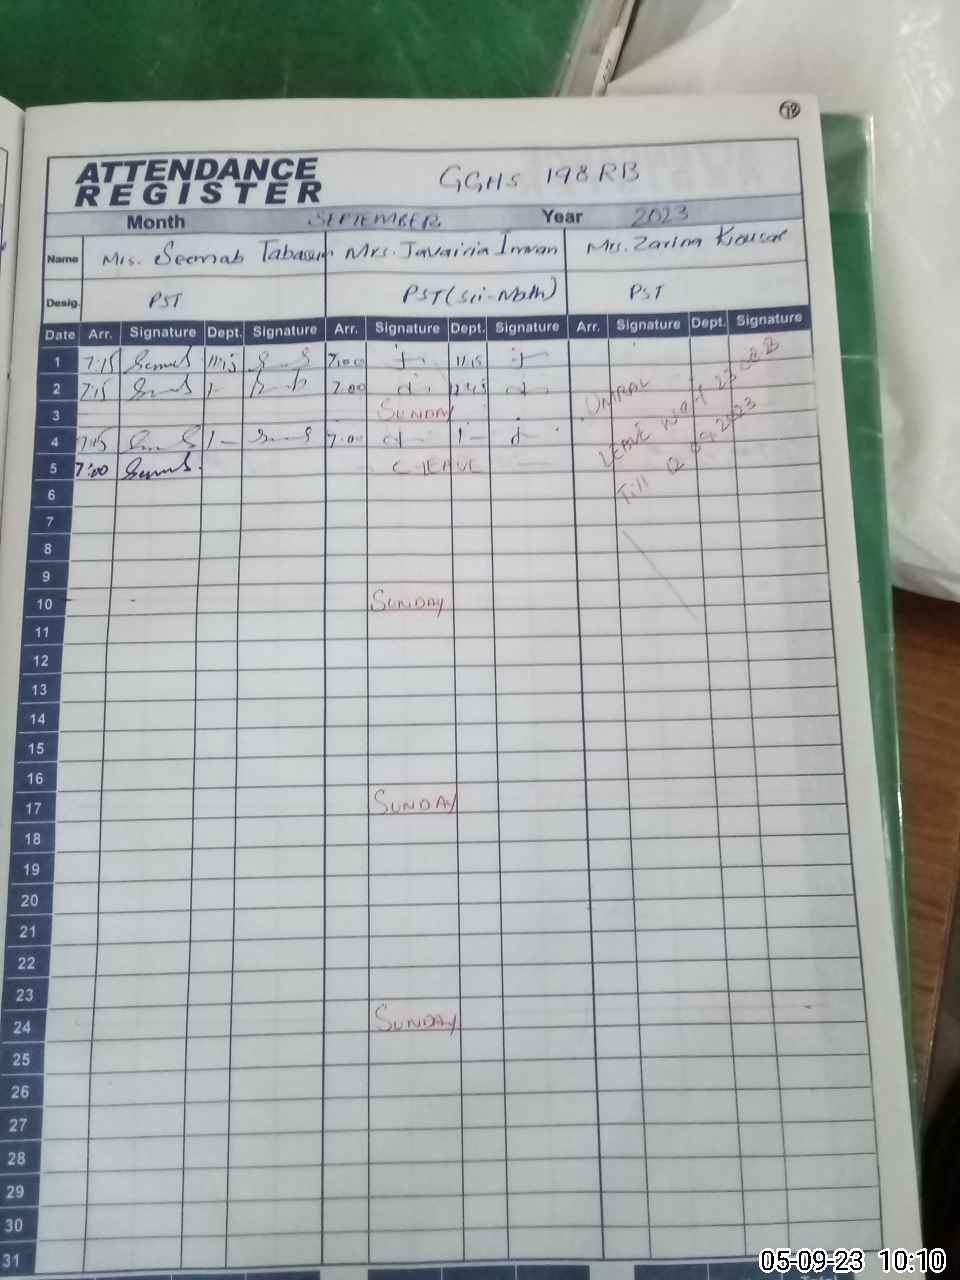 78
ATTENDANCE
REGISTER
GGHS 198 RB
Month SEPTEMBER Year 2023
Name Mis. Seemab Tabasum Mrs. Javairia Imran Mrs. Zarina Kousar
Desig. PST PST (Sci-Math) PST
Date Arr. Signature Dept. Signature Arr. Signature Dept. Signature Arr. Signature Dept. Signature
1 7:15 11:15 7:00 11:15
2 7:15 1- 7:00 12:45
3 SUNDAY
4 7:15 1- 7:00 1-
5 7:00 C LEAVE
LEAVE w.e.f 23
Till 12 09 2023
6
7
8
9
10 SUNDAY
11
12
13
14
15
16
17 SUNDAY
18
19
20
21
22
23
24 SUNDAY
25
26
27
28
29
30
31
05-09-23 10:10